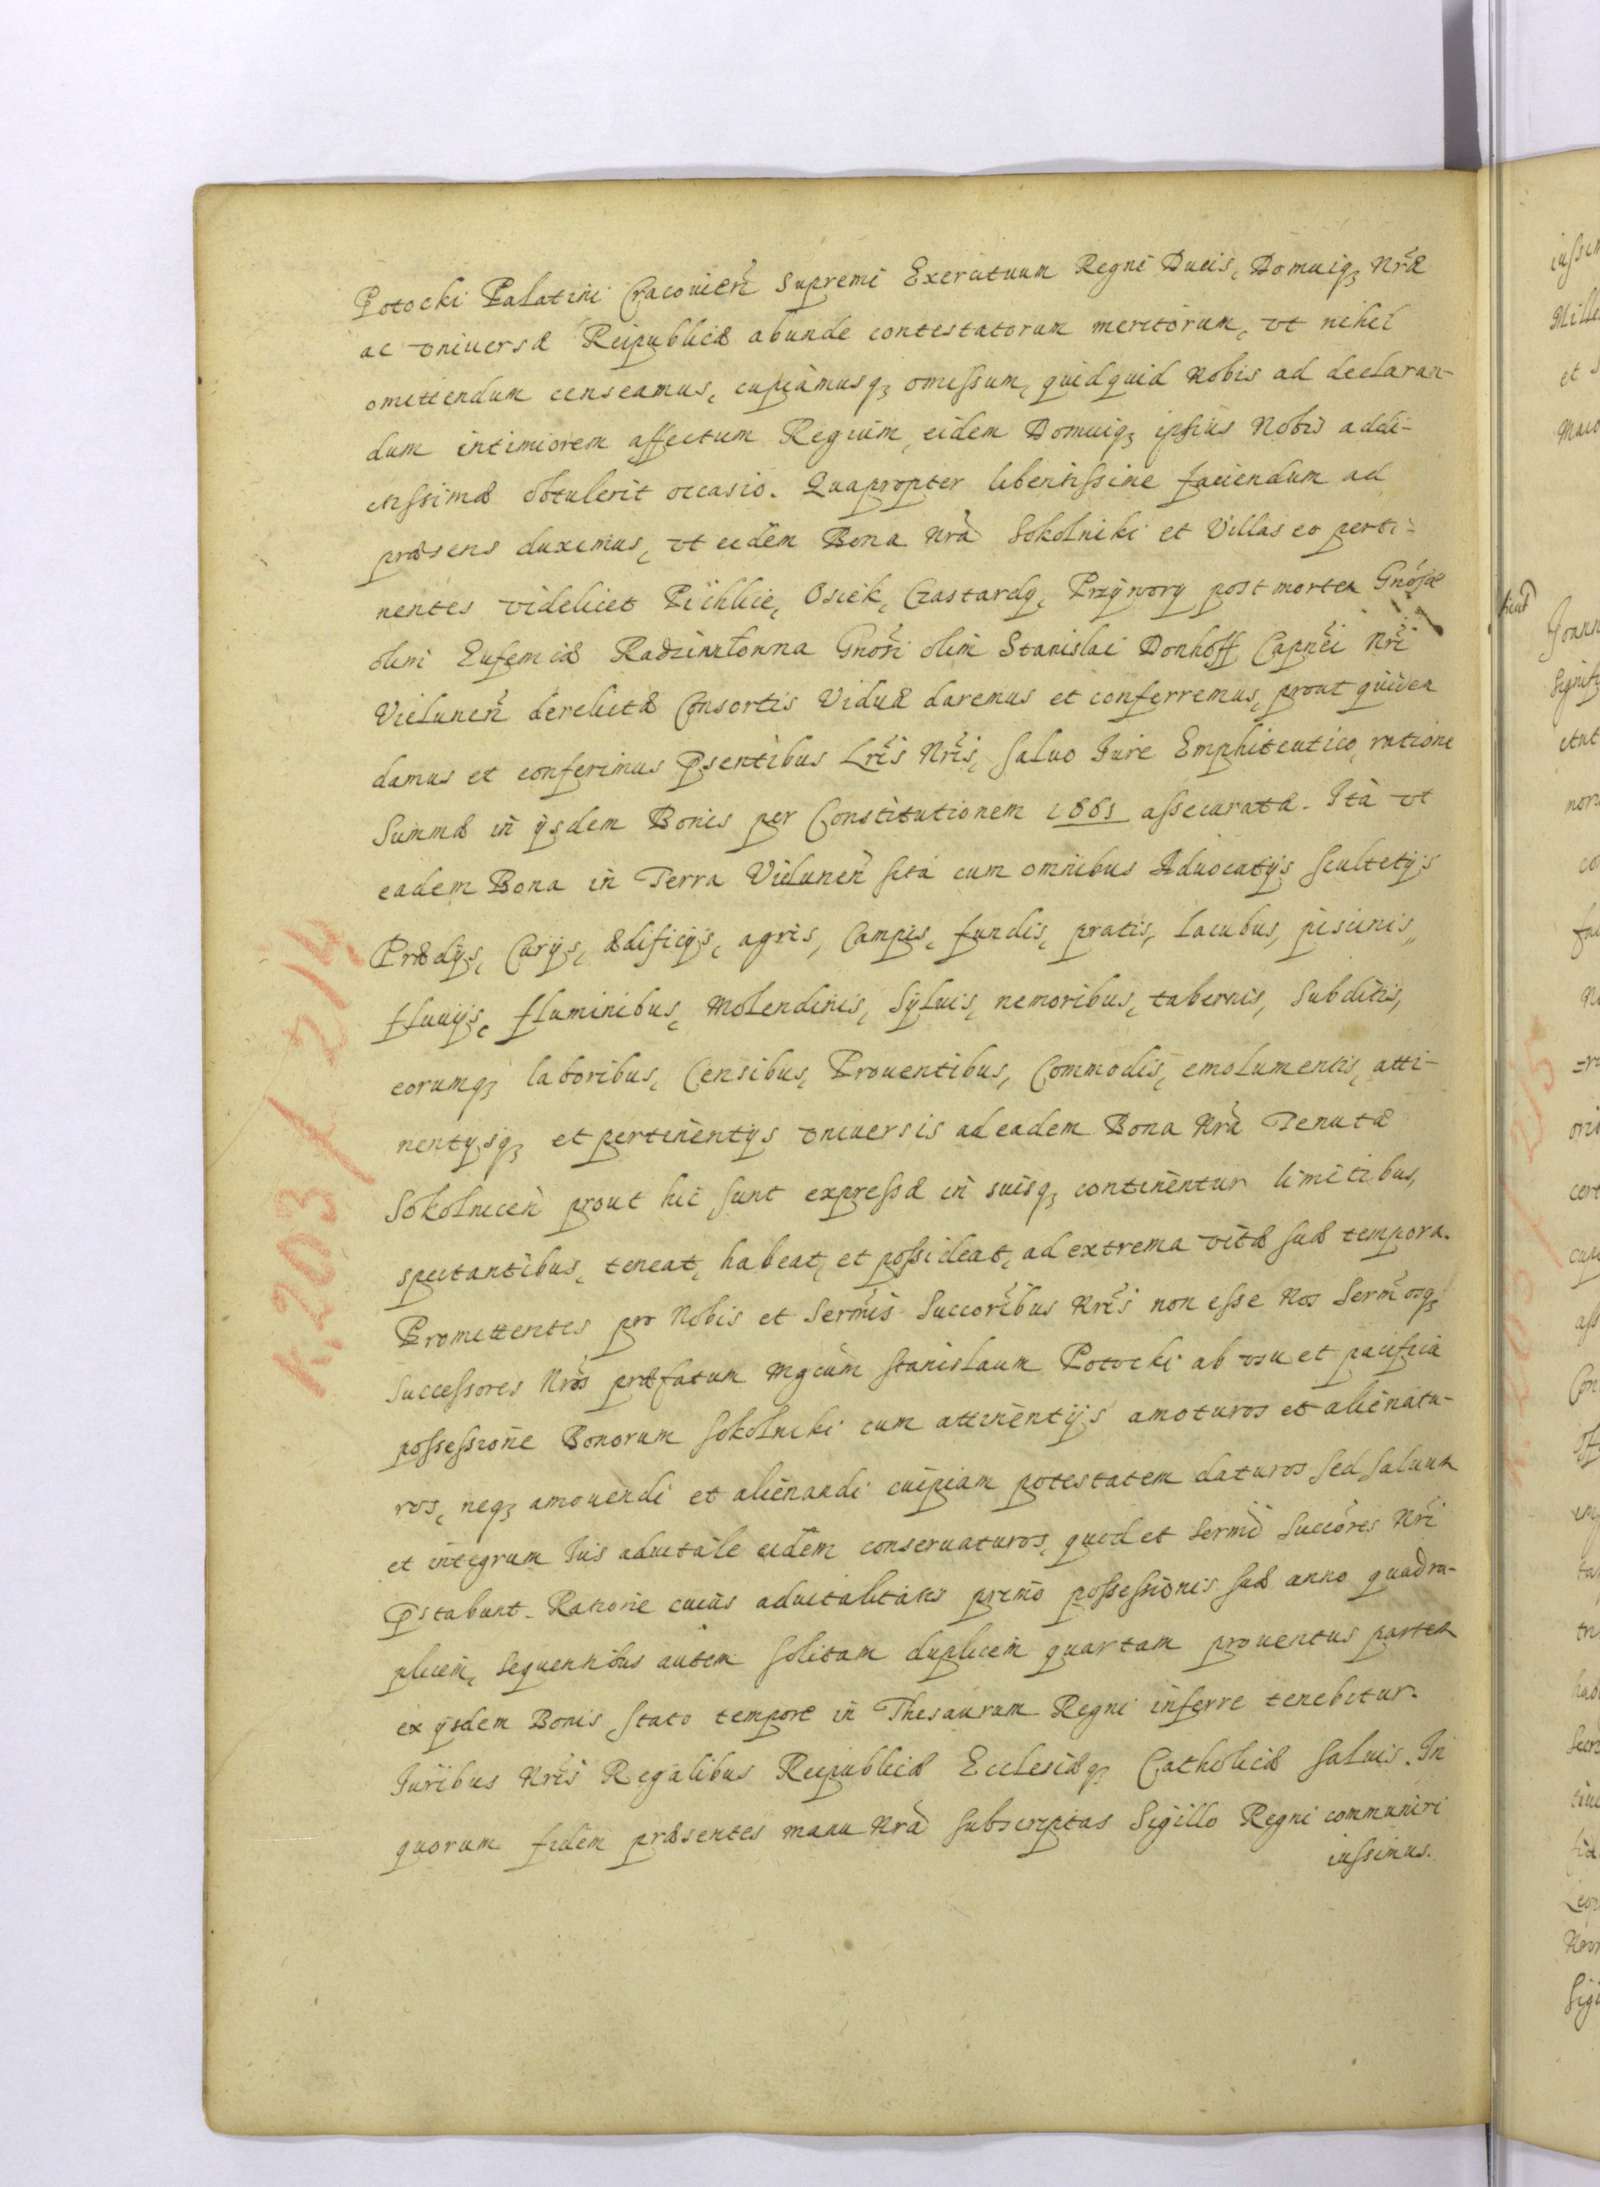 Potocki Palatini Cracovieñ Supremi Exercituum Regni Ducis, Domuiq; Nræ
ac vniversæ Reipublicæ abunde contestatorum meritorum, vt nihil
omittendum censeamus, cupiamusq; omissum, quidquid Nobis ad declaran-
dum intimiorem affectum Regium, eidem Domuiq; ipsius Nobis addi-
ctissimæ obtulerit occasio. Quapropter libentissime faciendum ad
præsens duximus, vt eidem Bona Nrã Sokolniki et Villas eo perti-
nentes videlicet Pichlice, Osiek, Czastardy, Przywory post mortem Gnosæ
olim Eufemiæ Radziwiłonna Gnosi olim Stanislai Donhoff Capnei Nri
Vieluneñ derelictæ Consortis Viduæ daremus et conferremus, prout quidem
damus et conferimus Psentibus Lris Nris, saluo Iure Emphiteutico, ratione
Summæ in ijsdem Bonis per Constitutionem 1661 assecuratæ. Ità vt
eadem Bona in Terra Vieluneñ sita cum omnibus Aduocatijs scultetijs
Prædijs, Curijs, ædificijs, agris, Campis, fundis, pratis, Lacubus, piscinis,
fluuijs, fluminibus, Molendinis, Syluis, nemoribus, tabernis, Subditis,
eorumq; laboribus, Censibus, Prouentibus, Commodis, emolumentis, atti-
nentijsq; et pertinentijs vniuersis ad eadem Bona Nrã Tenutæ
Sokolniceñ prout hic sunt expressæ in suisq; continentur limitibus,
spectantibus, teneat, habeat, et possideat, ad extrema vitæ suæ tempora.
Promittentes pro Nobis et Sermis Succoribus Nris non esse Nos Sermosq;
Successores Nros præfatum Mgcum Stanislaum Potocki ab vsu et pacifica
possessione Bonorum Sokolniki cum attinentijs amoturos et alienatu-
ros, neq; amouendi et alienandi cuipiam potestatem daturos sed saluum
et integrum Ius aduitale eidem conseruaturos, quod et Sermi Succores Nri
Pstabunt. Ratione cuius aduitalitatis primo possessionis suæ anno quadru-
plicem, sequentibus autem solitam duplicem quartam prouentus partem
ex ijsdem Bonis stato tempore in Thesaurum Regni inferre tenebitur.
Iuribus Nris Regalibus Reipublicæ Ecclesiæq; Catholicæ saluis. In
quorum fidem præsentes manu Nrã subscriptas Sigillo Regni communiri
iussimus.
K. 203 / 214